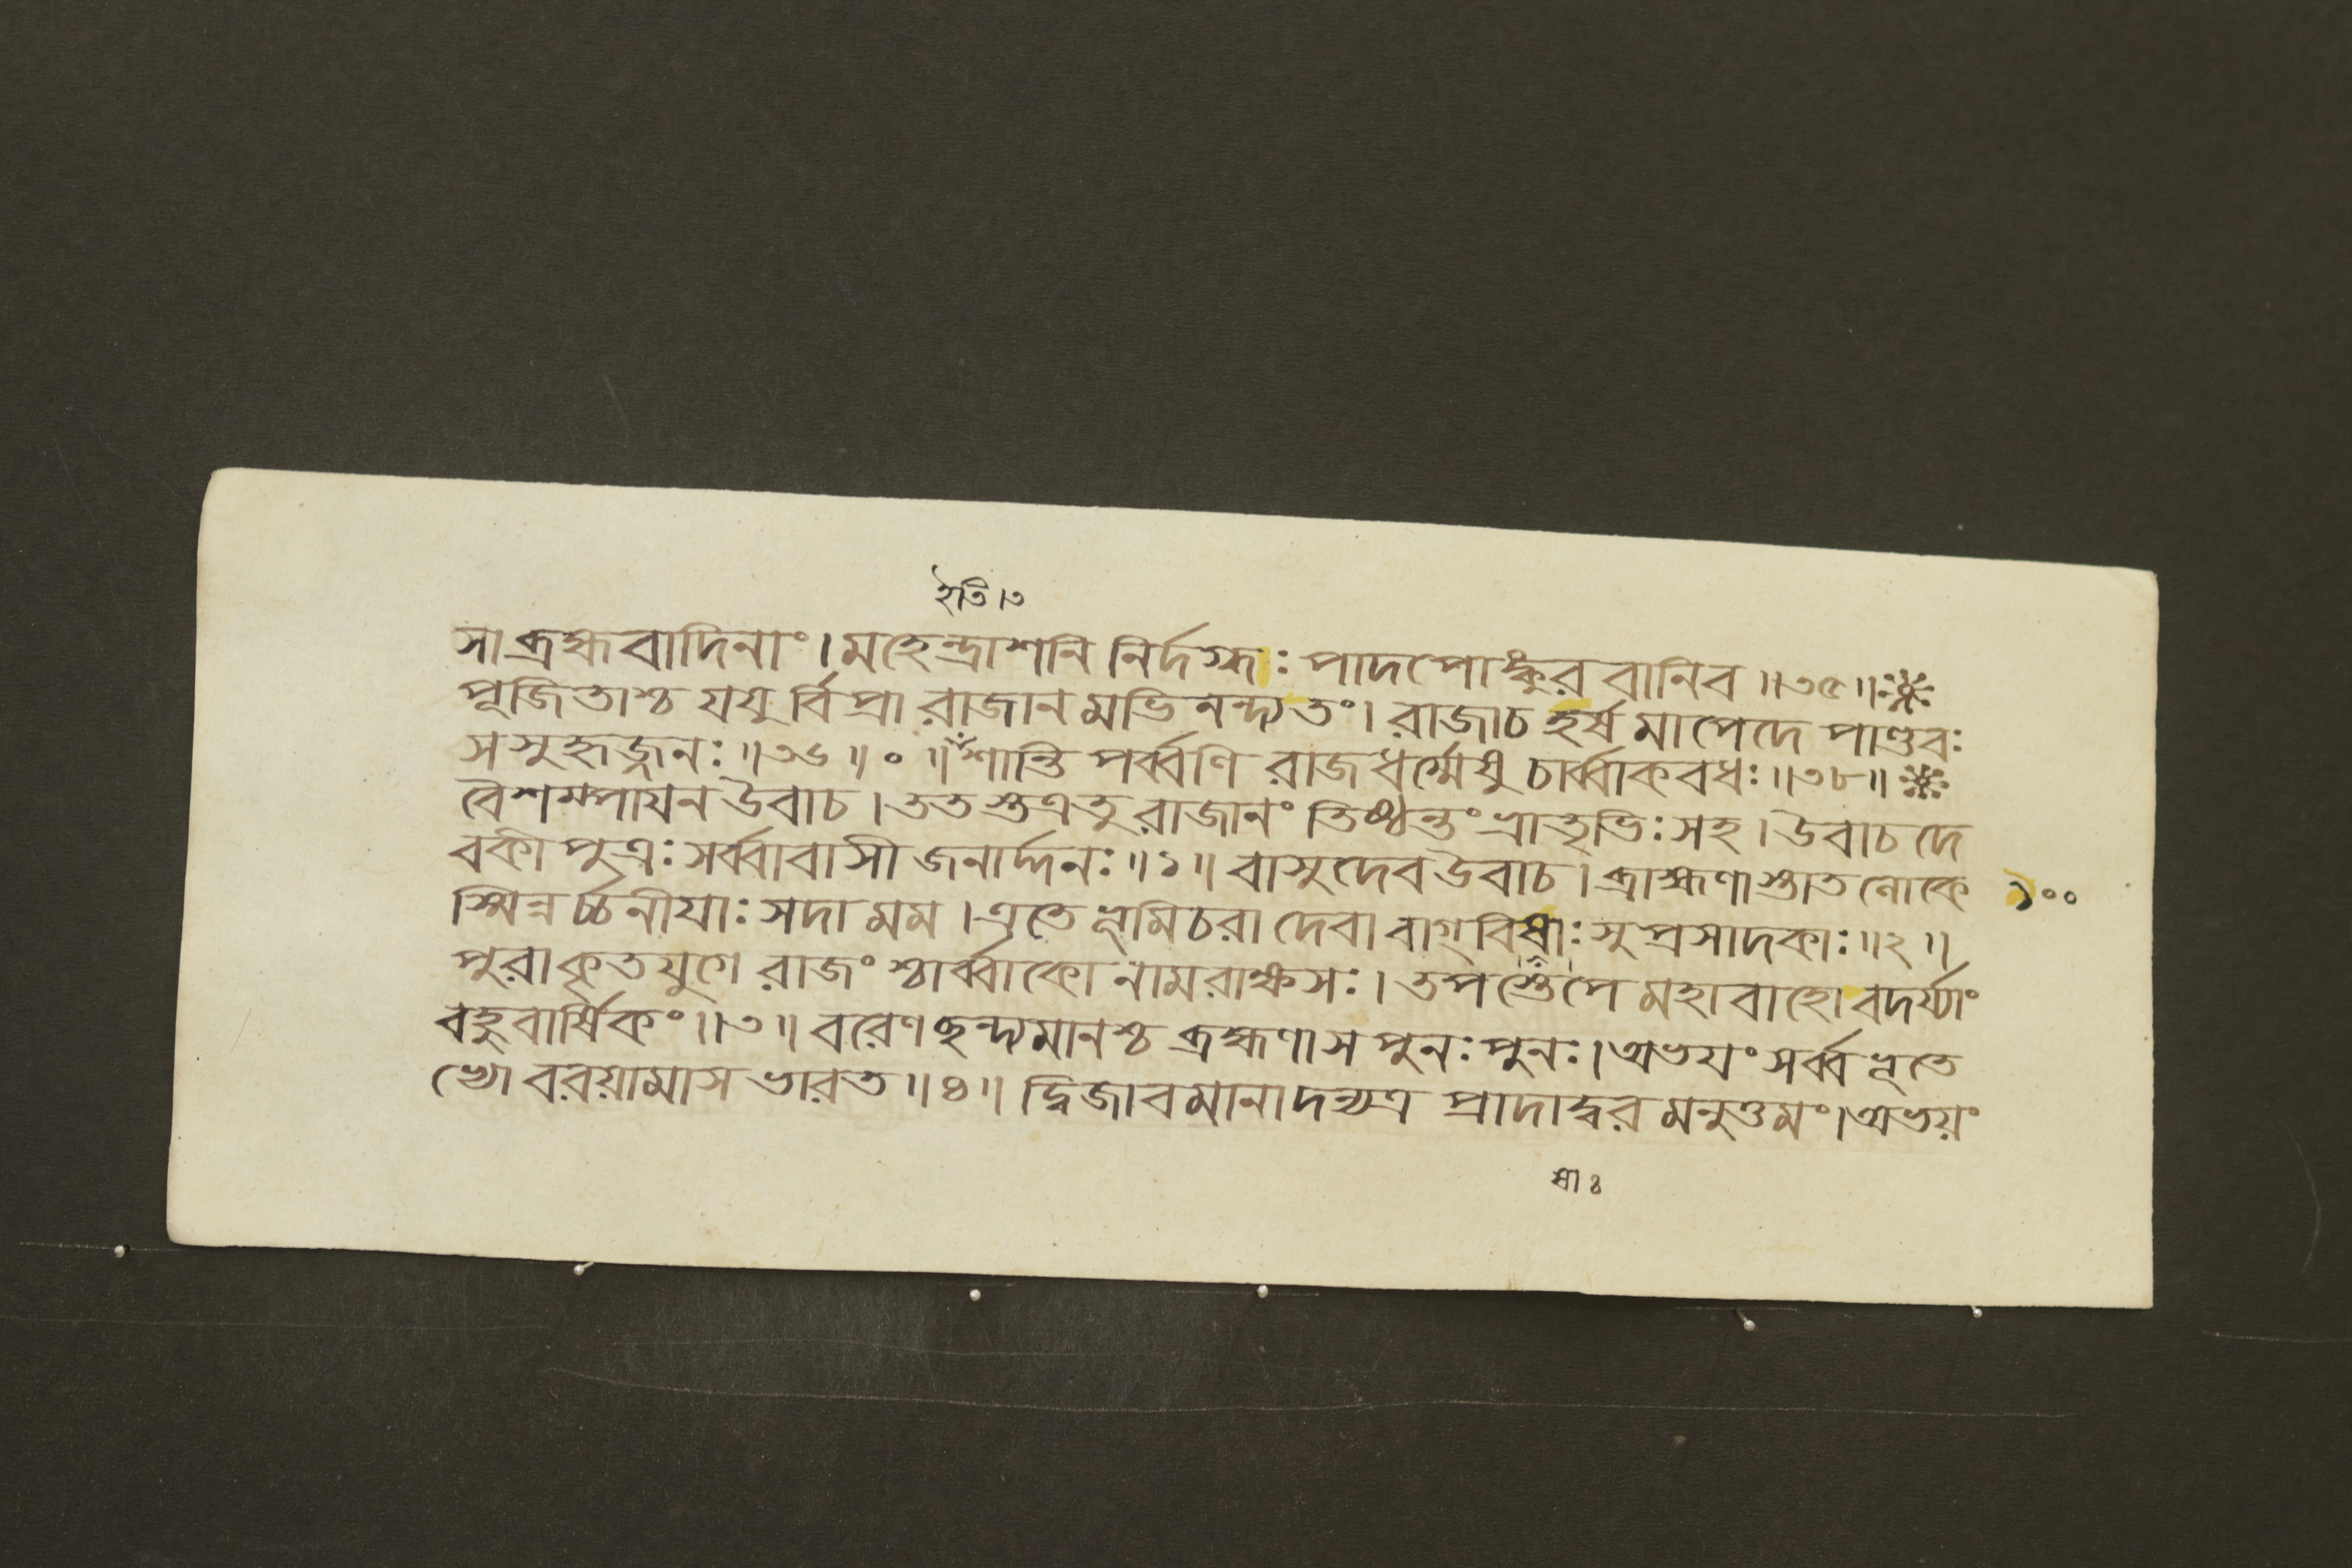 ইতি।৩
সা ব্রহ্মবাদিনাং। মহেন্দ্রাশনি নির্দগ্ধঃ পাদপোঙ্কুর বানিব॥৩৫॥
পূজিতাশ্চ যযু র্বিপ্রা রাজান মভিনন্দ্যতং। রাজাচ হর্ষ মাপেদে পাণ্ডবঃ
স সুহৃজ্জনঃ॥৩৬॥০॥ শান্তি পর্ব্বণি রাজধর্ম্মেষু চার্ব্বাকবধঃ॥৩৮॥
বৈশম্পাযন উবাচ। ততস্তত্রতু রাজানং তিষ্ঠন্তং ভ্রাতৃভিঃ সহ। উবাচ দে
বকী পুত্রঃ সর্ব্বাবাসী জনার্দ্দনঃ॥১॥ বাসুদেব উবাচ। ব্রাহ্মণাস্তাত লোকে
১০০
স্মিন্নর্চ্চনীযাঃ সদা মম। এতে ভূমিচরা দেবা বাগ্বিষাঃ সুপ্রসাদকাঃ॥২॥
পুরা কৃতযুগে রাজং শ্চার্ব্বাকো নামরাক্ষসঃ। তপস্তেপে মহাবাহো বদর্য্যাং
বহুবার্ষিকং॥৩॥ বরেণ ছন্দ্যমানশ্চ ব্রহ্মণা স পুনঃ পুনঃ। অভযং সর্ব্ব ভূতে
ভ্যো বরয়ামাস ভারত॥৪॥ দ্বিজাবমানাদন্যত্র প্রাদাদ্বর মনুত্তমং। অভয়ং